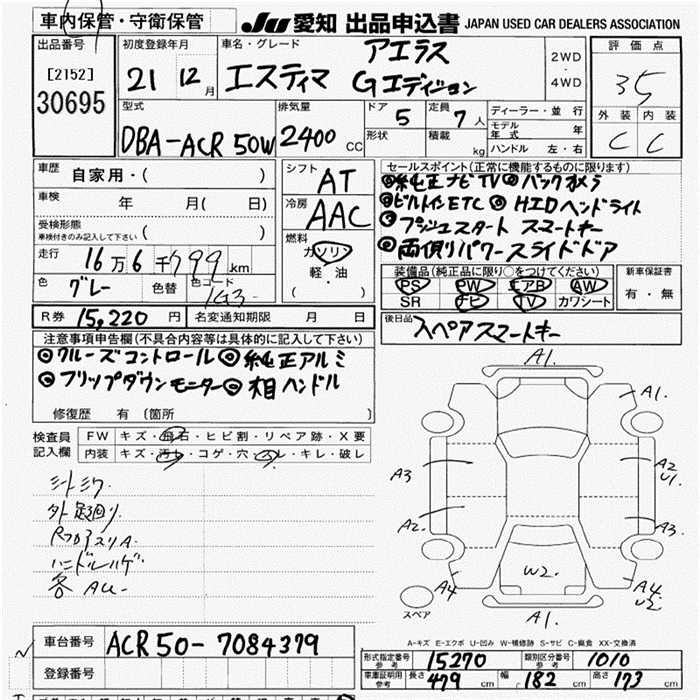 車内保管・守衛保管 JU 愛知 出品申込書 JAPAN USED CAR DEALERS ASSOCIATION
出品番号 初度登録年月 車名・グレード アエラス 2WD・4WD 評価点
[2152] 21 12月 エスティマ Gエディション 3.5
30695 外装 内装
型式 排気量 ドア 5 定員 7人 ディーラー・並行 C C
DBA-ACR50W 2400CC 形状 積載 kg モデル年式 年
ハンドル 左・右
車歴 自家用・( ) シフト AT セールスポイント(正常に機能するものに限ります)
◎純正ナビTV◎バックカメラ
車検 年 月( 日) 冷房 AAC ◎ビルトインETC ◎HIDヘッドライト
受検形態 ( ) ◎プッシュスタート スマートキー
車検付きのみ記入して下さい
走行 16万6千799km 燃料 ガソリン ◎両側パワースライドドア
軽・油
( )
装備品(純正品に限り○をつけてください) 新車保証書
色 グレー 色替 色コード 1G3 PS PW エアB AW 有・無
SR ナビ TV カワシート
R券 15,220円 名変通知期限 月 日 後日品 スペアスマートキー
注意事項申告欄(不具合内容等は具体的に記入して下さい)
◎クルーズコントロール◎純正アルミ
◎フリップダウンモニター◎木目ハンドル
修復歴 有 〔箇所 〕
検査員記入欄 FW キズ・飛石・ヒビ割・リペア跡・X要
内装 キズ・汚れ・コゲ・穴・スレ・キレ・破レ
シートシワ
外足廻り
RフロアスリA
ハンドルハゲ
各AU
A1.
A1.
A3 A2 U1.
A2. A3
W2.
A4 A4 U2
スペア A1.
A-キズ E-エクボ U-凹み W-補修跡 S-サビ C-腐食 XX-交換済
車台番号 ACR50-7084379
登録番号
形式指定番号 参考 15270 類別区分番号 参考 1010
車庫証明用 参考 長さ 479cm 幅 182cm 高さ 173cm